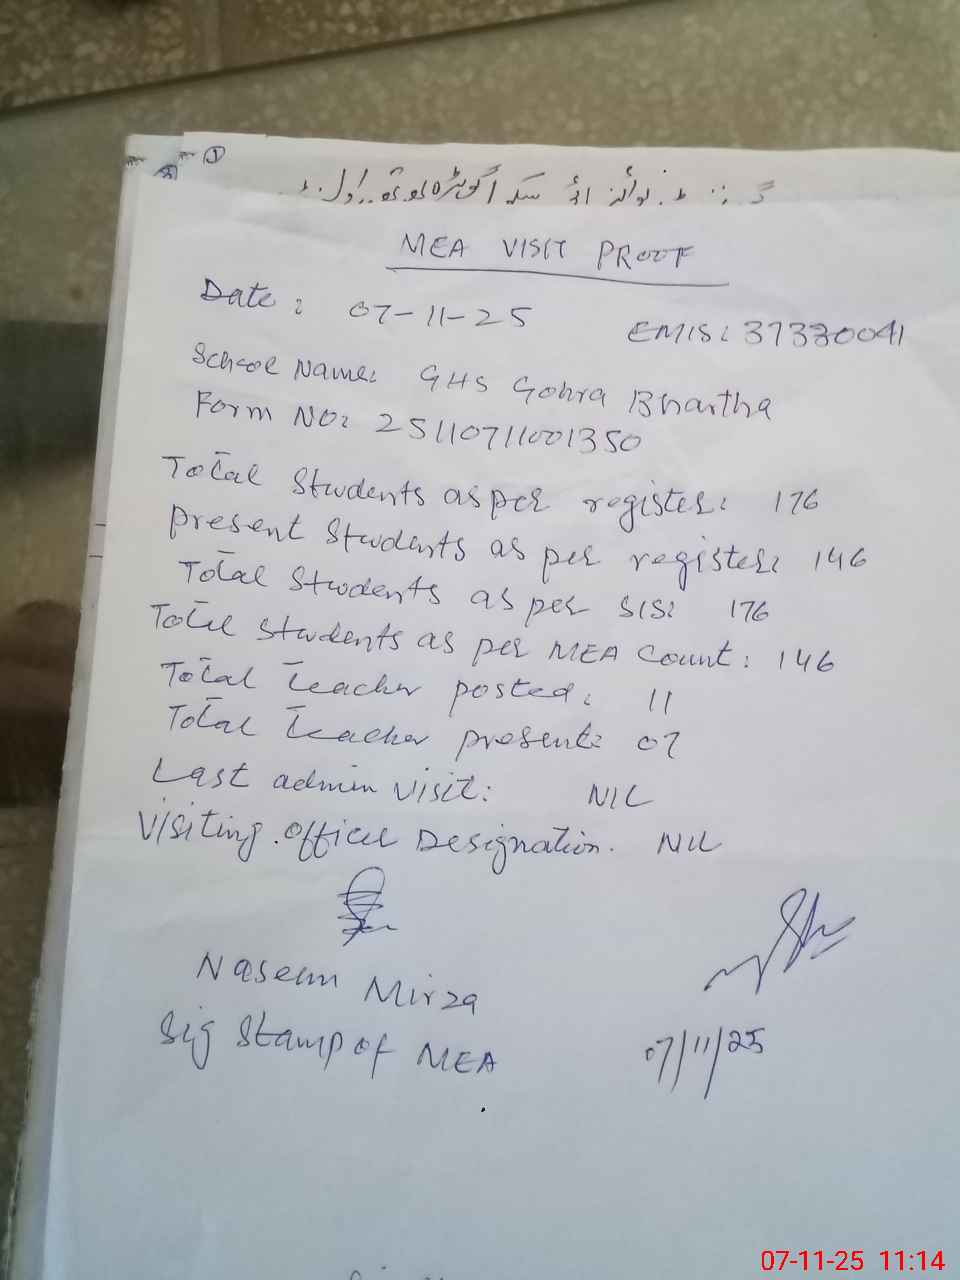 MEA VISIT PROOF
Date: 07-11-25
EMIS: 37330041
School Name: GHS Gohra Bhartha
Form NO: 25110711001350
Total Students as per register: 176
Present Students as per register: 146
Total Students as per SIS: 176
Total Students as per MEA Count: 146
Total Teacher posted: 11
Total Teacher present: 07
Last admin visit: NIL
Visiting officer Designation. NIL
Naseem Mirza
Sig Stamp of MEA
07/11/25
07-11-25 11:14